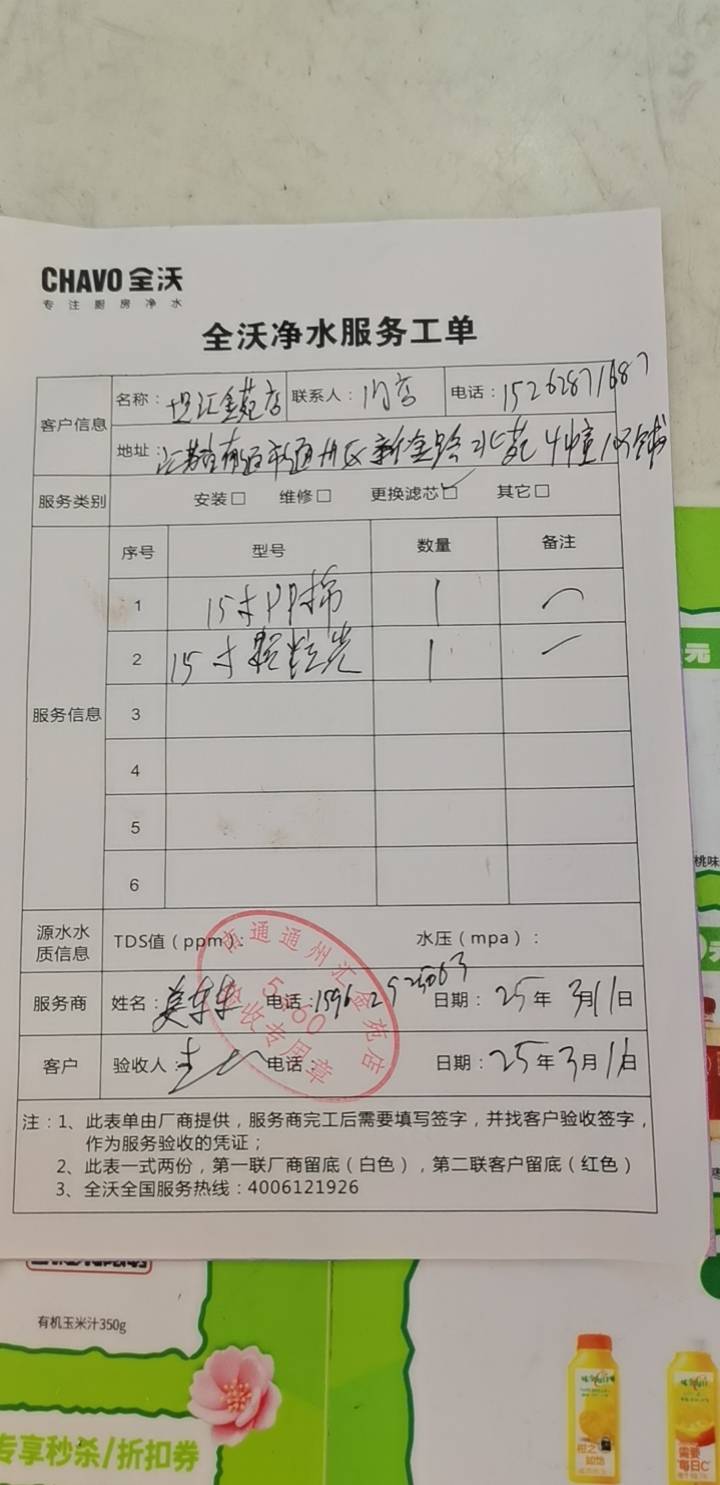 CHAVO 全沃
专注厨房净水
全沃净水服务工单
客户信息
名称： 汇金苑店 联系人：门店 电话：15262871687
地址：江苏省南通市通州区新金路 北苑 4幢
服务类别 安装□ 维修□ 更换滤芯□✓ 其它□
服务信息
序号 型号 数量 备注
1 15寸PP棉 1 一
2 15寸颗粒炭 1 一
3
4
5
6
源水水质信息 TDS值（ppm）： 水压（mpa）：
服务商 姓名： 电话： 日期：25年3月11日
客户 验收人： 电话： 日期：25年3月11日
南通通州汇金苑店
5460
验收专用章
注：1、此表单由厂商提供，服务商完工后需要填写签字，并找客户验收签字，
作为服务验收的凭证；
2、此表一式两份，第一联厂商留底（白色），第二联客户留底（红色）
3、全沃全国服务热线：4006121926
元
桃味
有机玉米汁350g
专享秒杀/折扣券
需要
每日C